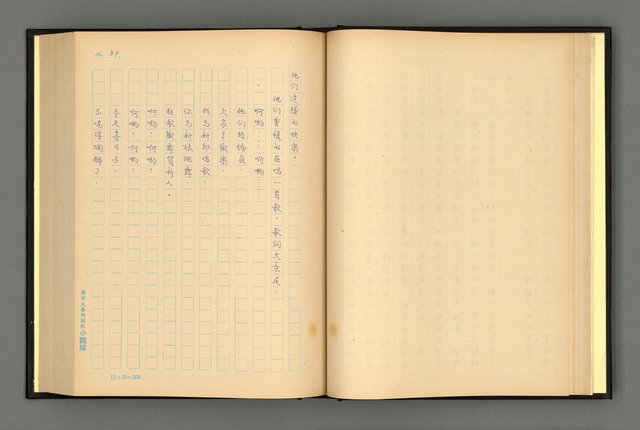 No 39.
他們這樣的快樂?
他們重複的在唱一首歌,歌詞大意是:
啊喲……啊喲……
他們結婚夜,
大家多歡樂。
我為新郎唱歌,
你為新娘跳舞,
輕歌歡舞賀新人。
啊喲!啊喲!
啊喲!啊喲!
今天喜日子,
不喝得
醉了。
小說館
12×25=300